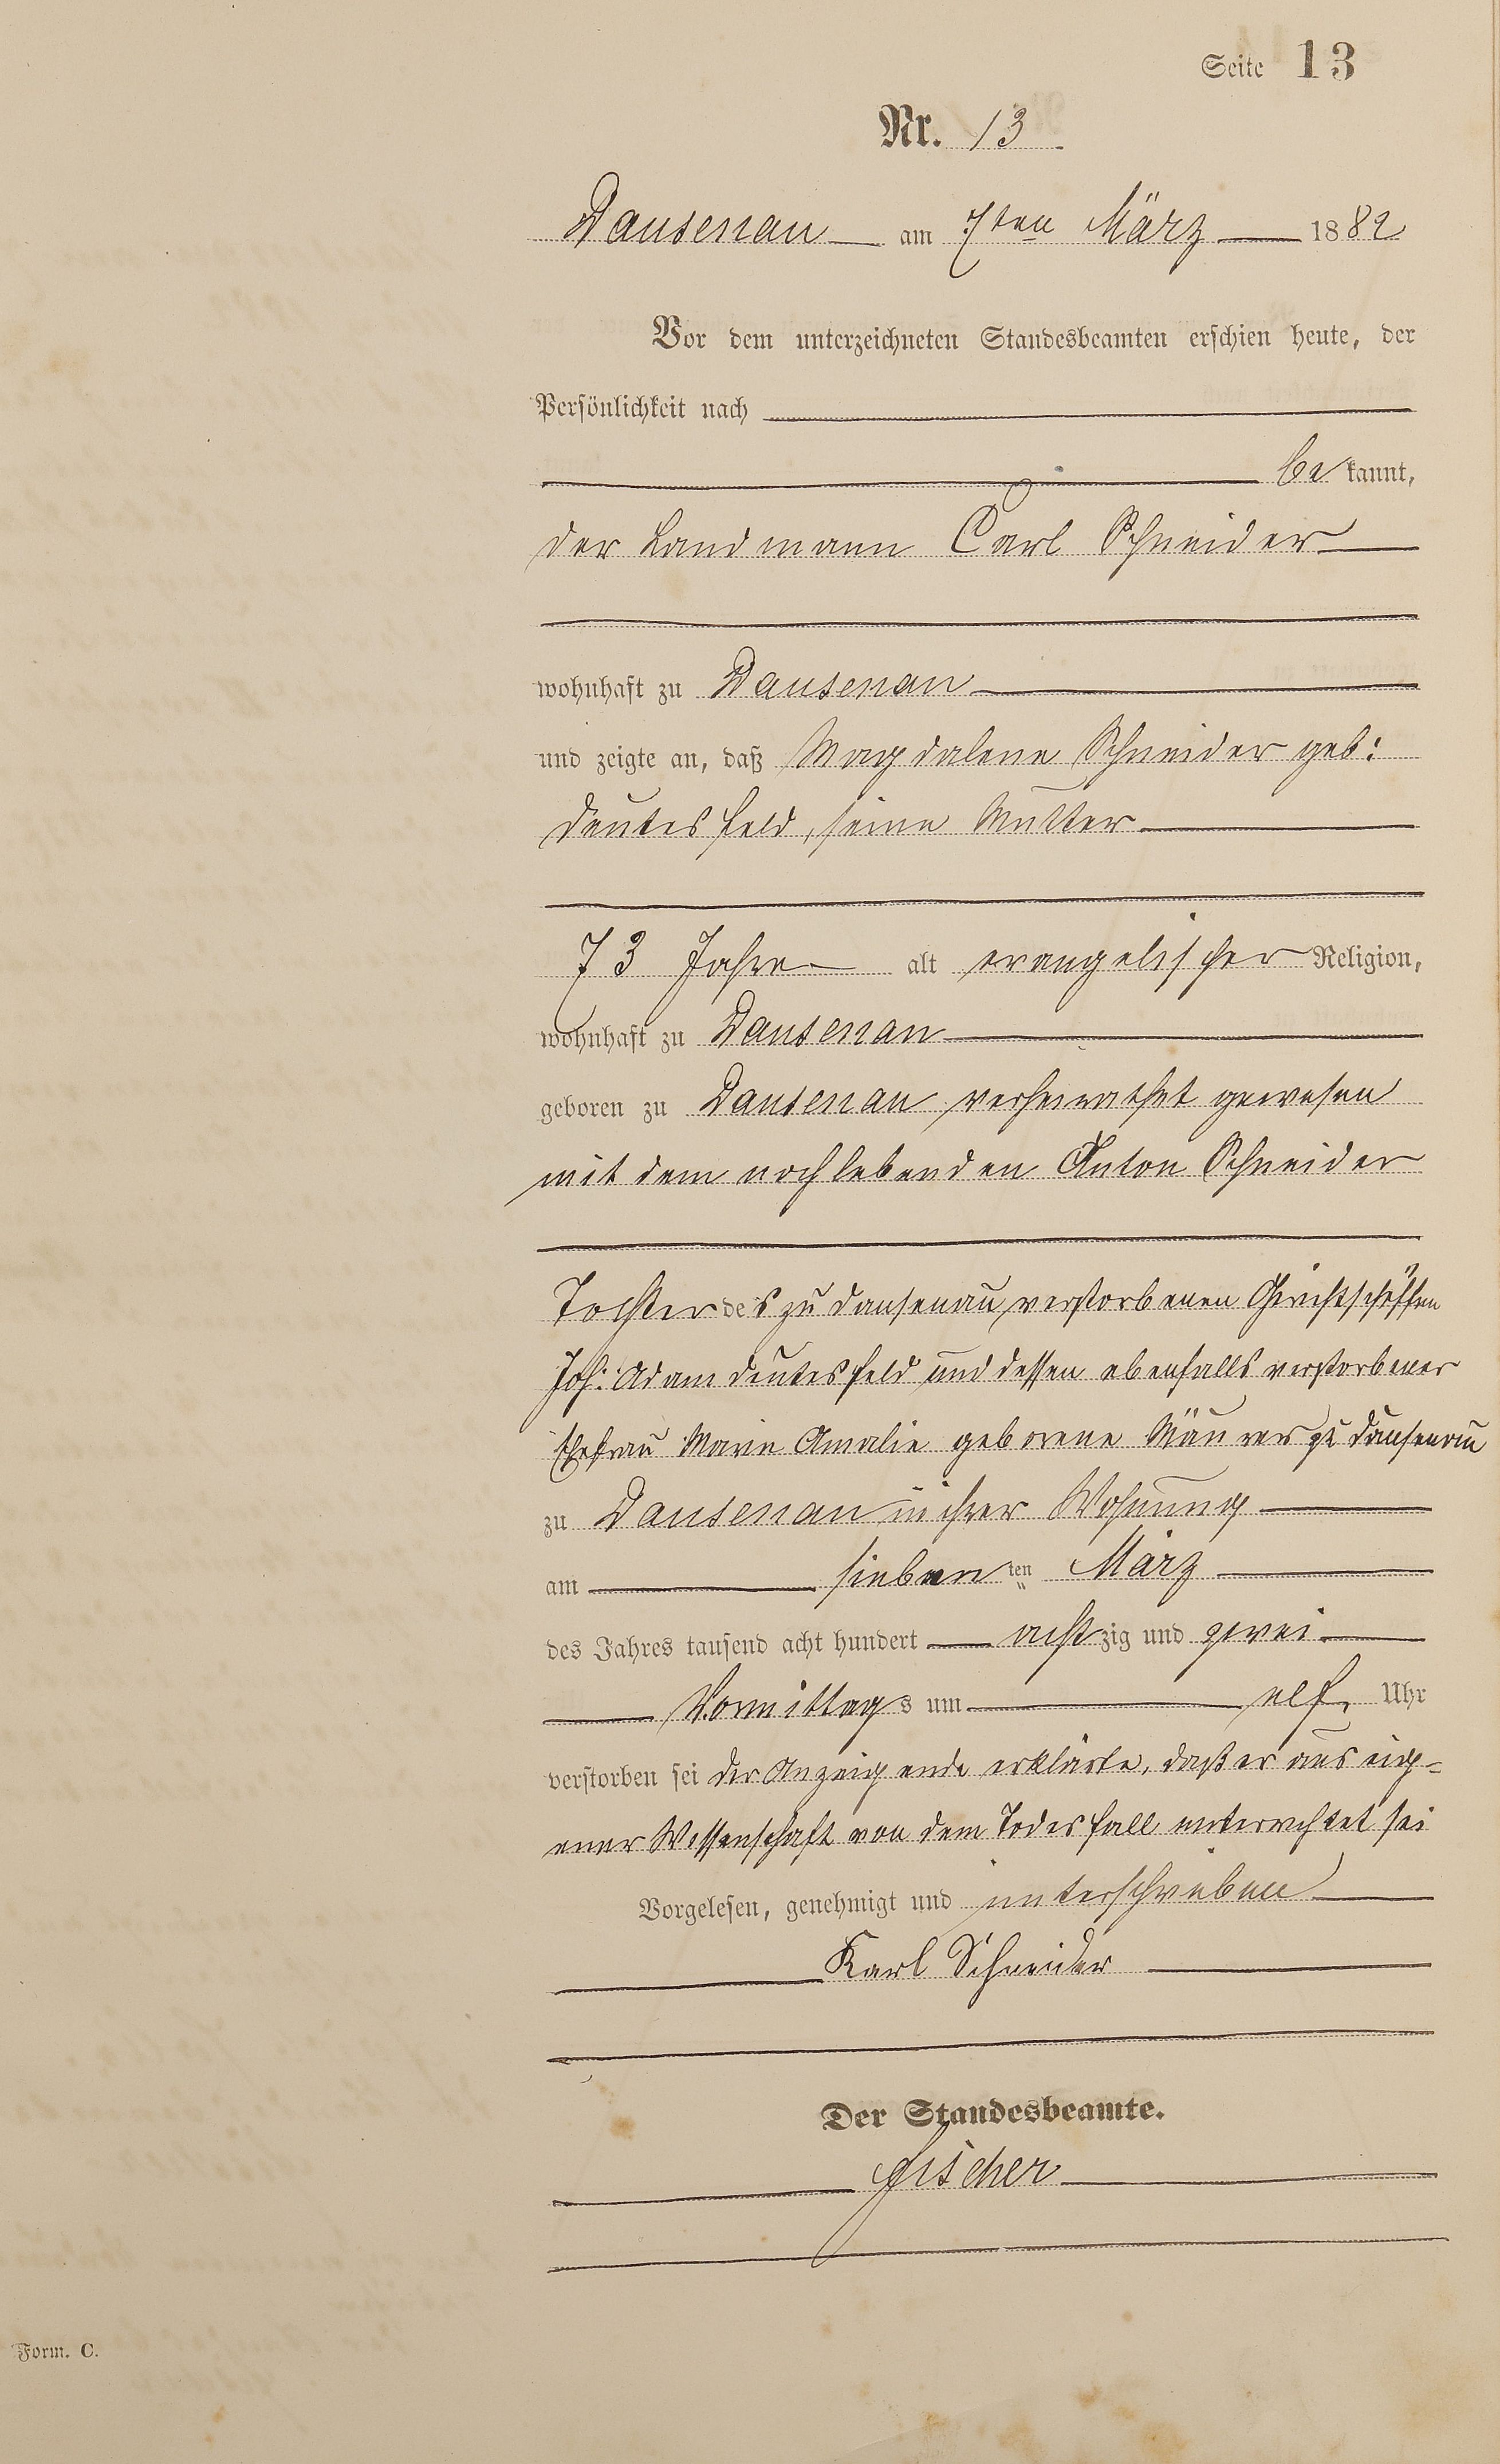 Seite 13
Nr. 13
Dausenau am 7ten März 1882
Vor dem unterzeichneten Standesbeamten erschien heute, der
Persönlichkeit nach
bekannt,
der Landmann Carl Schneider
wohnhaft zu Dausenau
und zeigte an, daß Magdalene Schneider geb:
Deutesfeld, seine Mutter
73 Jahre alt evangelischer Religion,
wohnhaft zu Dausenau
geboren zu Dausenau verheirathet gewesen
mit dem noch lebenden Anton Schneider
Tochter des zu Dausenau verstorbenen Gerichtschöffen
Joh: Adam Deutesfeld und dessen ebenfalls verstorbener
Ehefrau Marie Amalie geborene Mäurer zu Dausenau
zu Dausenau in ihrer Wohnung
am sieben ten März
des Jahres tausend acht hundert achtzig und zwei
Vormittags um elf Uhr
verstorben sei Der Anzeigende erklärte, daß er aus eig-
ener Wissenschaft von dem Todesfall unterrichtet sei
Vorgelesen, genehmigt und unterschrieben
Karl Schneider
Der Standesbeamte.
Fischer
Form. C.